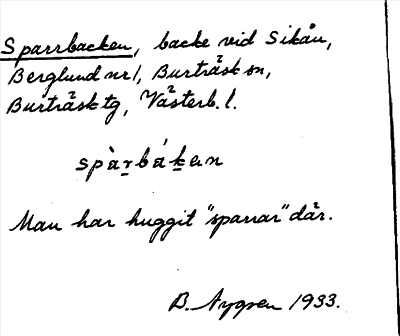 Sparrbacken, backe vid Sikån,
Berglund nr 1, Burträsk sn,
Burträsk tg, Västerb. l.
spàr̠bák̠ɐn
Man har huggit "sparrar" där.
B. Nygren 1933.